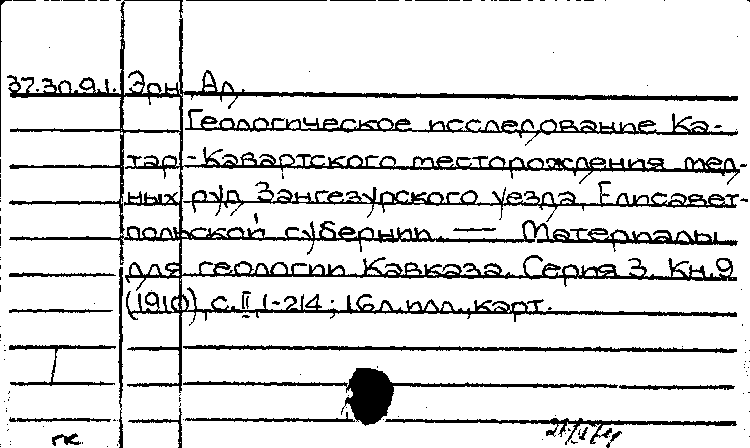 37.3п.9.1. Эрн, Ад.
Геологическое исследование Ка-
тар-Кавартского месторождения мед-
ных руд Зангезурского уезда, Елисавет-
польской губернии. — Материалы
для геологии Кавказа. Серия 3. Кн. 9
(1910), с. II, 1-214; 16 л. илл., карт.
гк